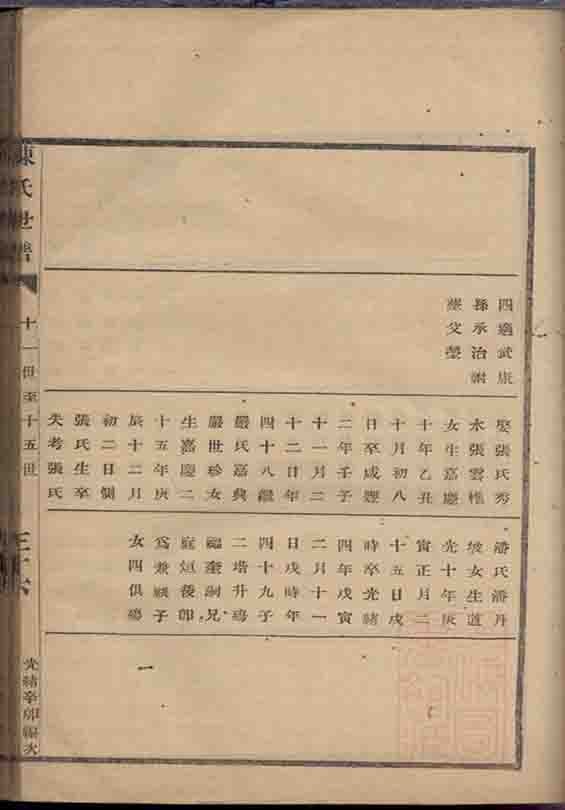 四適武康
孫承治謝
娶張氏秀
水張雲樵
女生嘉慶
十年乙丑
十月初八
日卒咸豐
二年壬子
十一月二
十二日年
四十八繼
嚴氏嘉興
嚴世珍女
生嘉慶二
十五年庚
辰十二月
初二日側
張氏生卒
失考張氏
潘氏潘丹
坡女生道
光十年庚
寅正月二
十五日戌
時卒光緒
四年戊寅
二月十一
日戌時年
四十九子
二增升殤
福奎嗣兄
庭烜後卽
爲兼祧子
女四俱殤
陳氏世譜
十一世至十五世
光緒辛卯編次